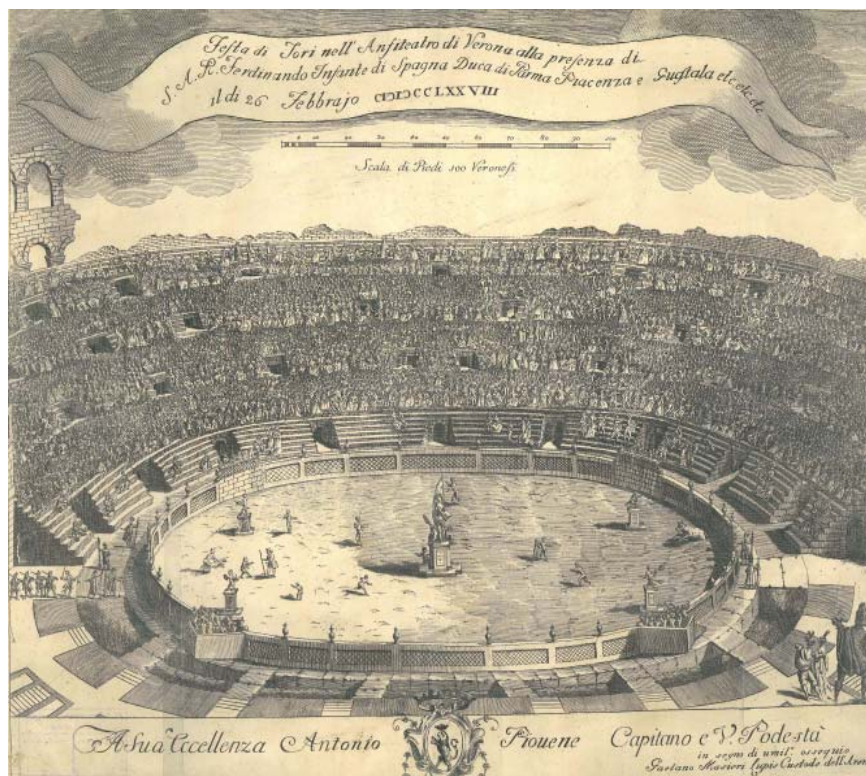 Festa di Tori nell' Anfiteatro di Verona alla presenza di
S. A. R. Ferdinando Infante di Spagna Duca di Parma Piacenza e Gustala etc. etc. etc
il di 26 Febbrajo CIƆIƆCCLXXVIII
10 20 30 40 50 60 70 80 90 100
Scala di Piedi 100 Veronesi
A Sua Eccellenza Antonio Piouene Capitano e V. Podestà
in segno di umil. ossequio
Gaetano Masieri Custode dell'